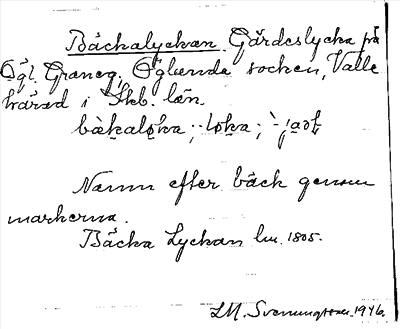 Bäckalyckan. Gärdeslycka på
Ögl. Graneg, Öglunda socken, Valle
härad i Skb. län.
Namn efter bäck genom
markerna.
Bäcka Lyckan lm. 1805.
LM. Svenungsson. 1946.